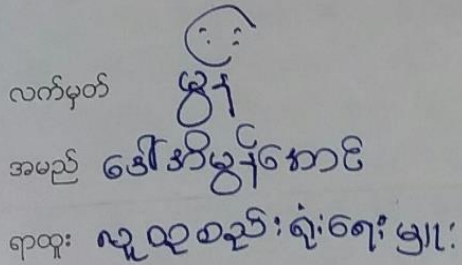 လက်မှတ် မွန်
အမည် ဒေါ်အိမွန်အောင်
ရာထူး လူထုစည်းရုံးရေးမှူး